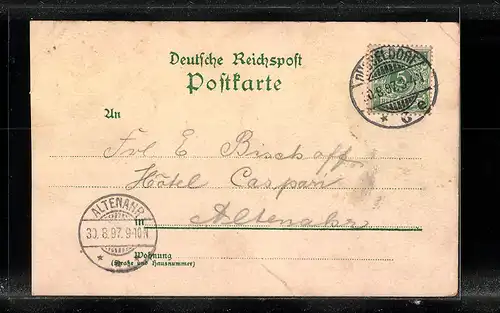 Deutsche Reichspost
Postkarte
DÜSSELDORF
5
30.8.97.
* 6 e
An
Frl E Bischoff
Hôtel Caspari
in Altenahr
ALTENAHR
30.8.97.9-10N
* *
Wohnung
(Straße und Hausnummer)